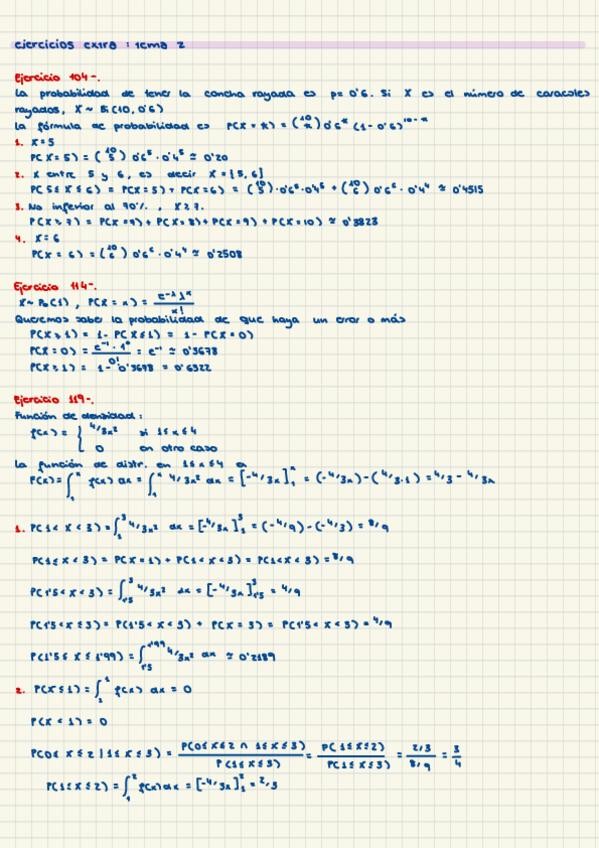 ejercicios extra : tema 2
Ejercicio 104-.
La probabilidad de tener la concha rayada es p= 0'6. Si X es el número de caracoles
rayados, X ~ Bi(10, 0'6)
La fórmula de probabilidad es P(X = x) = (10 x) 0'6^x (1 - 0'6)^10-x
1. X=5
P(X = 5) = (10 5) 0'6^5 · 0'4^5 ≈ 0'20
2. X entre 5 y 6, es decir X = [5, 6]
P(5 ≤ X ≤ 6) = P(X = 5) + P(X = 6) = (10 5) · 0'6^5 · 0'4^5 + (10 6) 0'6^6 · 0'4^4 ≈ 0'4515
3. No inferior al 70%, X ≥ 7.
P(X ≥ 7) = P(X = 7) + P(X = 8) + P(X = 9) + P(X = 10) ≈ 0'3823
4. X = 6
P(X = 6) = (10 6) 0'6^6 · 0'4^4 ≈ 0'2508
Ejercicio 114-.
X ~ Po(1), P(X = x) = e^-λ λ^x / x!
Queremos saber la probabilidad de que haya un error o más
P(X ≥ 1) = 1 - P(X ≤ 1) = 1 - P(X = 0)
P(X = 0) = e^-1 · 1^0 / 0! = e^-1 ≈ 0'3678
P(X ≥ 1) = 1 - 0'3678 = 0'6322
Ejercicio 119-.
Función de densidad :
f(x) = { 4/3x² si 1 ≤ x ≤ 4
0 en otro caso
La función de distr. en 1 ≤ x ≤ 4 es
F(x) = ∫_1^x f(x) dx = ∫_1^x 4/3x² dx = [-4/3x]_1^x = (-4/3x) - (-4/3·1) = 4/3 - 4/3x
1. P(1 < X < 3) = ∫_1^3 4/3x² dx = [-4/3x]_1^3 = (-4/9) - (-4/3) = 8/9
P(1 ≤ X < 3) = P(X = 1) + P(1 < X < 3) = P(1 < X < 3) = 8/9
P(1'5 < X < 3) = ∫_1'5^3 4/3x² dx = [-4/3x]_1'5^3 = 4/9
P(1'5 < X ≤ 3) = P(1'5 < X < 3) + P(X = 3) = P(1'5 < X < 3) = 4/9
P(1'5 ≤ X ≤ 1'99) = ∫_1'5^1'99 4/3x² dx ≈ 0'2189
2. P(X ≤ 1) = ∫_1^1 f(x) dx = 0
P(X < 1) = 0
P(0 ≤ X ≤ 2 | 1 ≤ X ≤ 3) = P(0 ≤ X ≤ 2 ∩ 1 ≤ X ≤ 3) / P(1 ≤ X ≤ 3) = P(1 ≤ X ≤ 2) / P(1 ≤ X ≤ 3) = 2/3 / 8/9 = 3/4
P(1 ≤ X ≤ 2) = ∫_1^2 f(x) dx = [-4/3x]_1^2 = 2/3